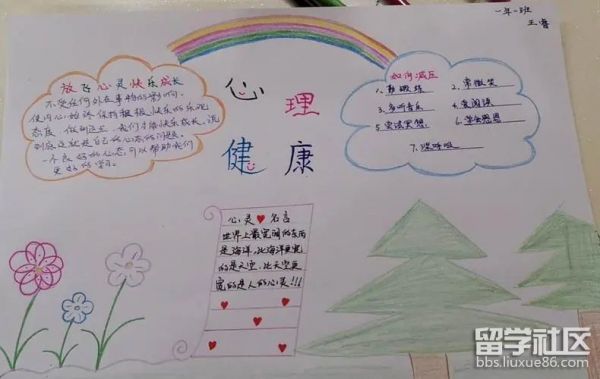 一年一班
王睿
放飞心灵快乐成长
不受任何外在事物的影响.
使内心始终保持积极、快乐的乐观
态度，做到这些，我们才能快乐成长，说
到底这就是自己的心态的问题。
一个良好的心态，可以帮助我们
更好的学习。
心理
健康
如何减压
1、多锻炼
2、常微笑
3、多听音乐
4、爱阅读
5、变法思想
6、学会感恩
7、深呼吸
心灵♥名言
世界上最宽阔的东西
是海洋，比海洋更宽
的是天空，比天空更
宽的是人的心灵!!!
留学社区
bbs.liuxue86.com